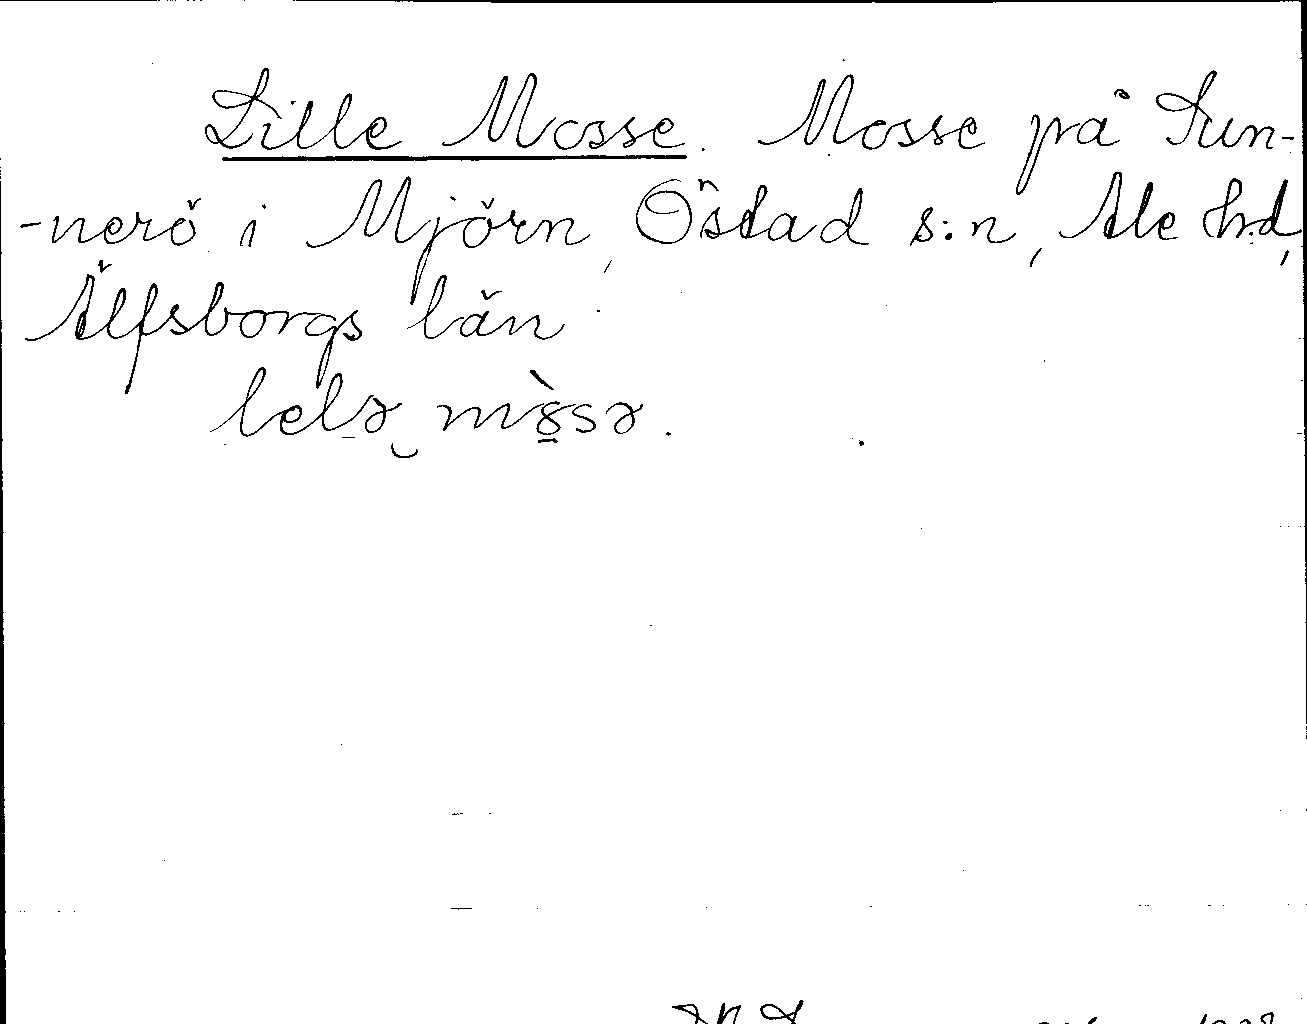 Lille Mosse. Mosse på Sun-
-nerö i Mjörn, Östad s:n, Ale hd,
Älfsborgs län.
lelə‿m8̠̀sə.